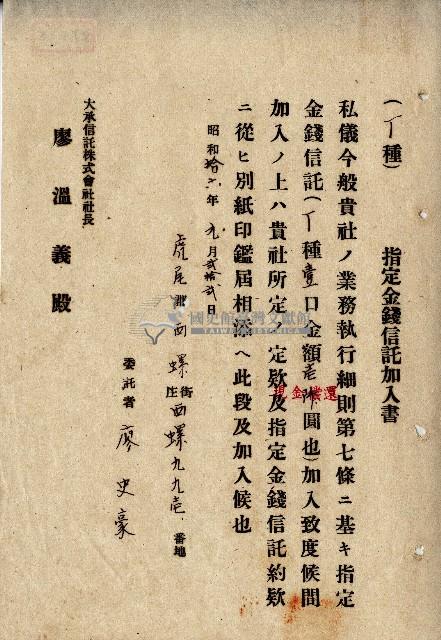 指定金錢信託加入書
私儀今般貴社ノ業務執行細則第七條ニ基キ指定
金錢信託(丁種壹口金額 圓也)加入致度候間
加入ノ上ハ貴社所定ノ定欵及指定金錢信託約欵
ニ從ヒ別紙印鑑屆相添ヘ此段及加入候也
現金償還
昭和拾六年九月貳拾貳日
虎尾郡西螺街庄西螺九九壱番地
委託者 廖史豪
大承信託株式會社社長
廖溫義殿
國史館臺灣文獻館
TAIWAN HISTORICA